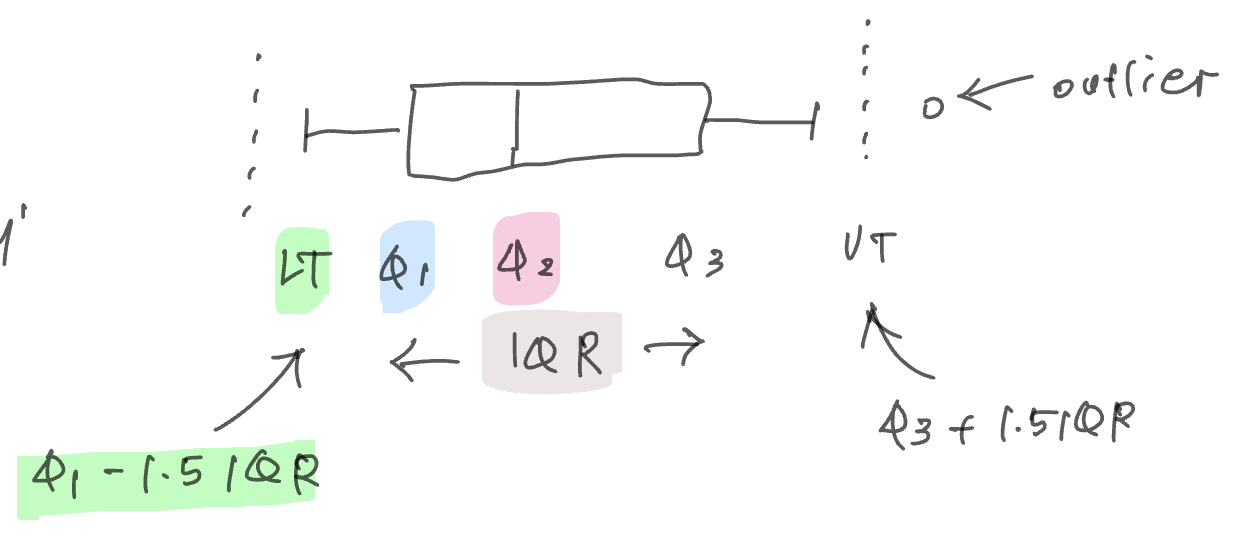 outlier
LT Q1 Q2 Q3 UT
IQR
Q3 + 1.5IQR
Q1 - 1.5 IQR